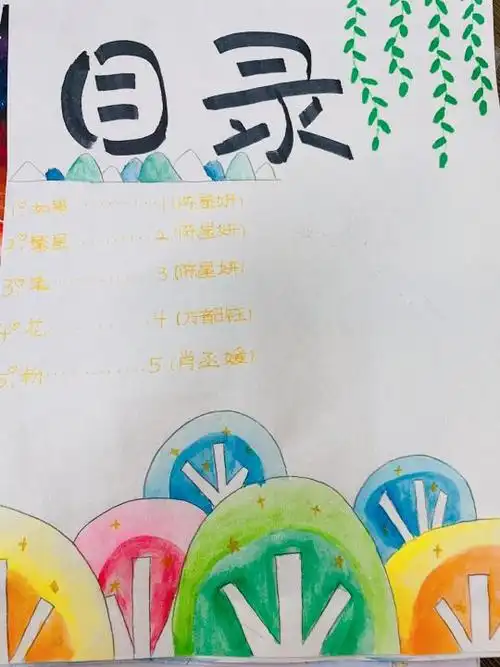 目录
1° 如果 ··········· 1 (陈星妍)
2° 繁星 ··········· 2 (陈星妍)
3° ··········· 3 (陈星妍)
4° 花 ··········· 4
5° 粉 ··········· 5 (肖丞媛)